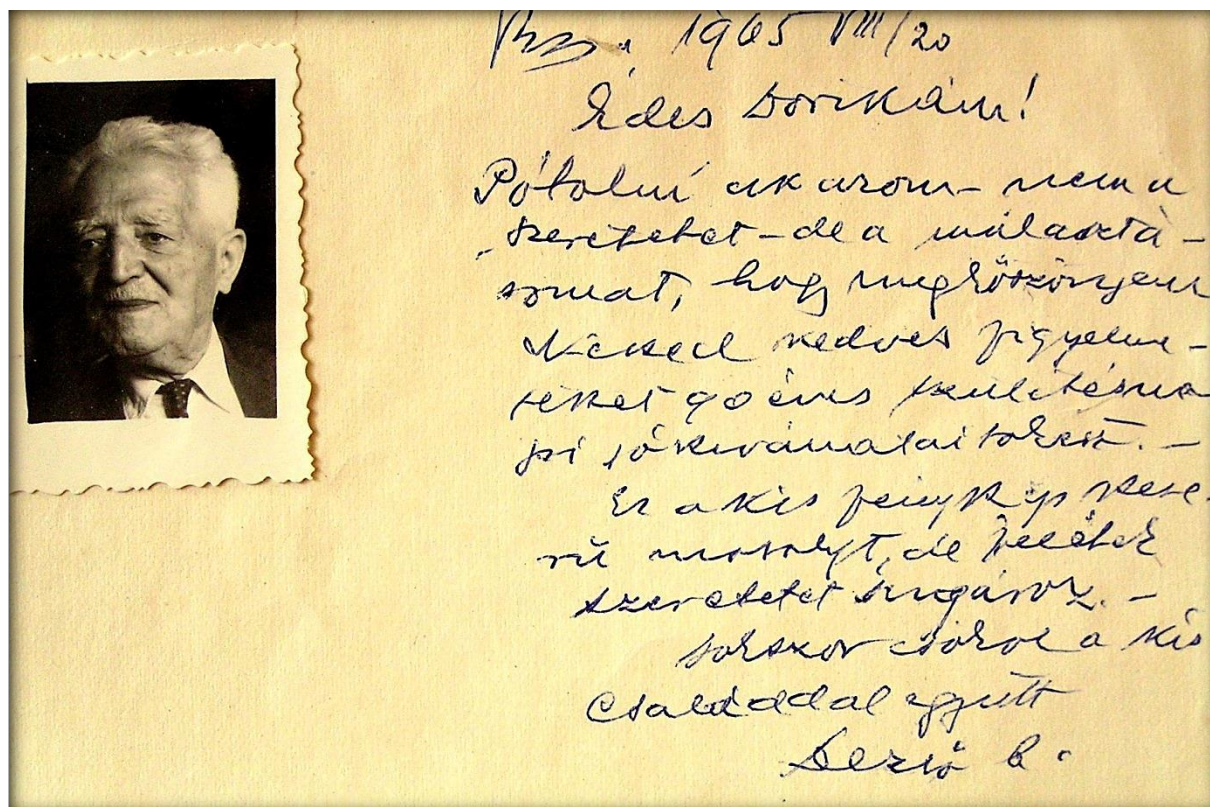 Bp., 1965 VIII/20
Édes Dorikám!
Pótolni akarom – nem a
szeretetet – de a mulasztá-
somat, hogy megköszönjem
Neked kedves figyelme-
teket 90 éves születésna-
pi jókivánalaitokért. –
Ez a kis fénykép kese-
rű mosolyt, de
szeretetet sugároz. –
Sokszor csókol a kis
Családdal együtt
Dezső b.